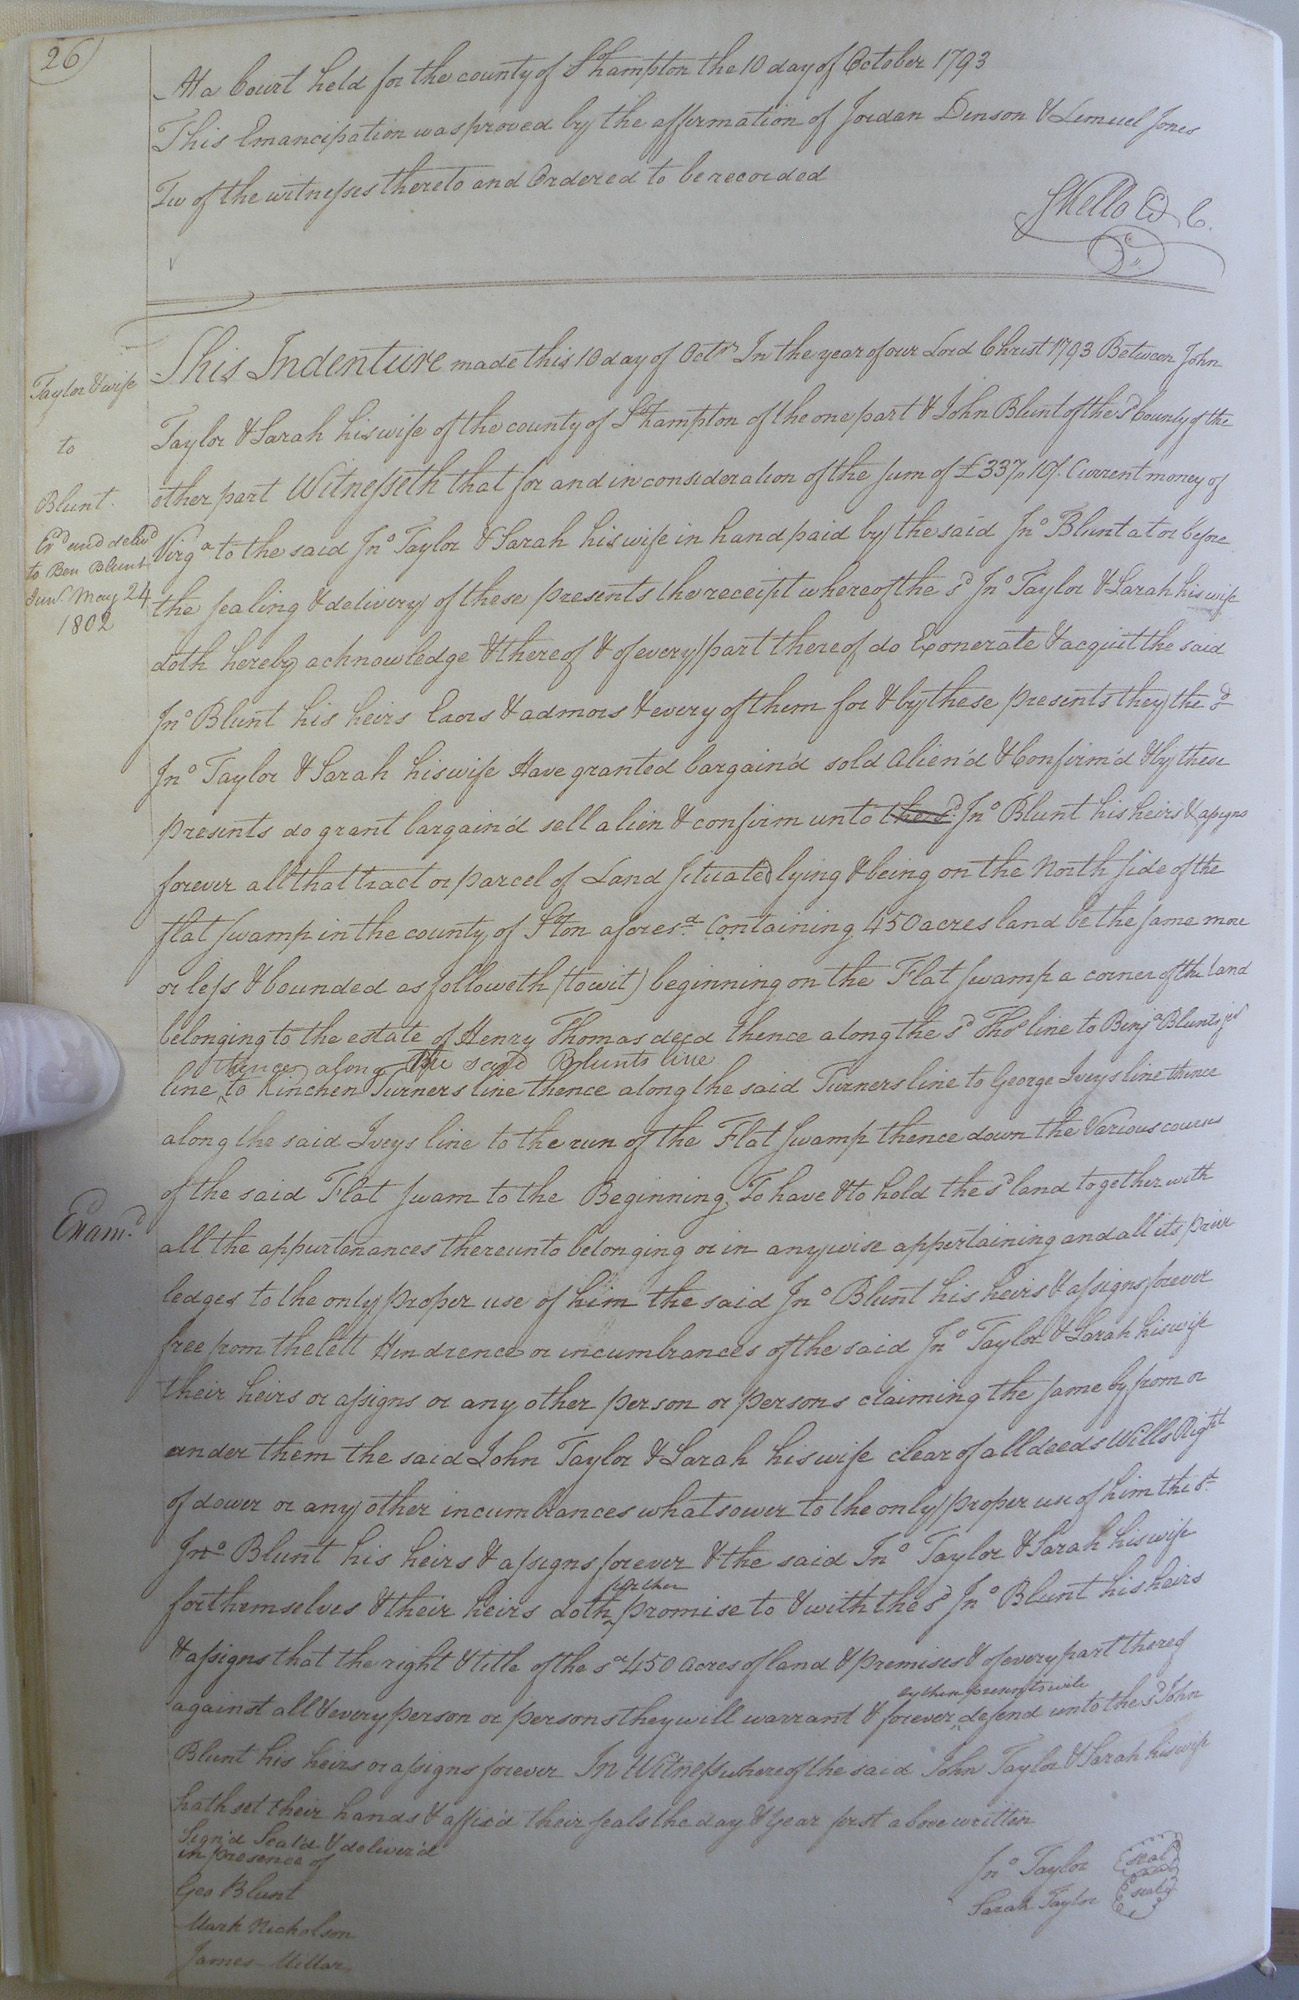 26
At a Court held for the county of S°hampton the 10 day of October 1793
This Emancipation was proved by the affirmation of Jordan Denson & Lemuel Jones
Tw of the witnesses thereto and Ordered to be recorded
SKello CS.C.
Taylor & wife
to
Blunt.
Exd and delivd
to Ben Blunt
Junr May 24
1802
This Indenture made this 10 day of Octr In the year of our Lord Christ 1793 Between John
Taylor & Sarah his wife of the county of S°Hampton of the one part & John Blunt of the sd County of the
other part Witnesseth that for and in consideration of the sum of £337.10/. Current money of
Virga to the said Jno Taylor & Sarah his wife in hand paid by the said Jno Blunt at or before
the sealing & delivery of these presents the receipt whereof the sd Jno Taylor & Sarah his wife
doth hereby achnowledge & thereof & of every part thereof do Exonerate & acquit the said
Jno Blunt his heirs Exors & admors & every of them for & by these presents they the sd
Jno Taylor & Sarah his wife Have granted bargain'd sold Alien'd & Confirm'd & by these
presents do grant bargain'd sell alien & confirm unto the sd Jno Blunt his heirs & assigns
forever all that tract or parcel of Land situated lying & being on the North side of the
flat swamp in the county of S°ton aforesd Containing 450 acres land be the same more
or less & bounded as followeth (to wit) beginning on the Flat swamp a corner of the land
belonging to the estate of Henry Thomas decd thence along the sd Thos line to Benja Blunts jr
thence along the said Blunts line
line to Kinchen Turners line thence along the said Turners line to George Iveys line thence
along the said Iveys line to the run of the Flat swamp thence down the Various courses
of the said Flat swam to the Beginning To have & to hold the sd land together with
Examd
all the appurtenances thereunto belonging or in any wise appertaining and all its privi
ledges to the only proper use of him the said Jno Blunt his heirs & assigns forever
free from the lett Hindrence or incumbrances of the said Jno Taylor & Sarah his wife
their heirs or assigns or any other person or persons claiming the same by from or
under them the said John Taylor & Sarah his wife clear of all deeds Wills Right
of dower or any other incumbrances whatsower to the only proper use of him the sd
Jno Blunt his heirs & assigns forever & the said Jno Taylor & Sarah his wife
further
for themselves & their heirs doth promise to & with the sd Jno Blunt his heirs
& assigns that the right & title of the sd 450 acres of land & premises & of every part thereof
by these presents will
against all & every person or persons they will warrant & forever defend unto the sd John
Blunt his heirs or assigns forever In Witness whereof the said John Taylor & Sarah his wife
hath set their hands & affix'd their seals the day & year first above written
Sign'd Seal'd & deliver'd
in presence of
Geo Blunt
Mark Nicholson
James Millar
Jno Taylor (seal)
Sarah Taylor (seal)